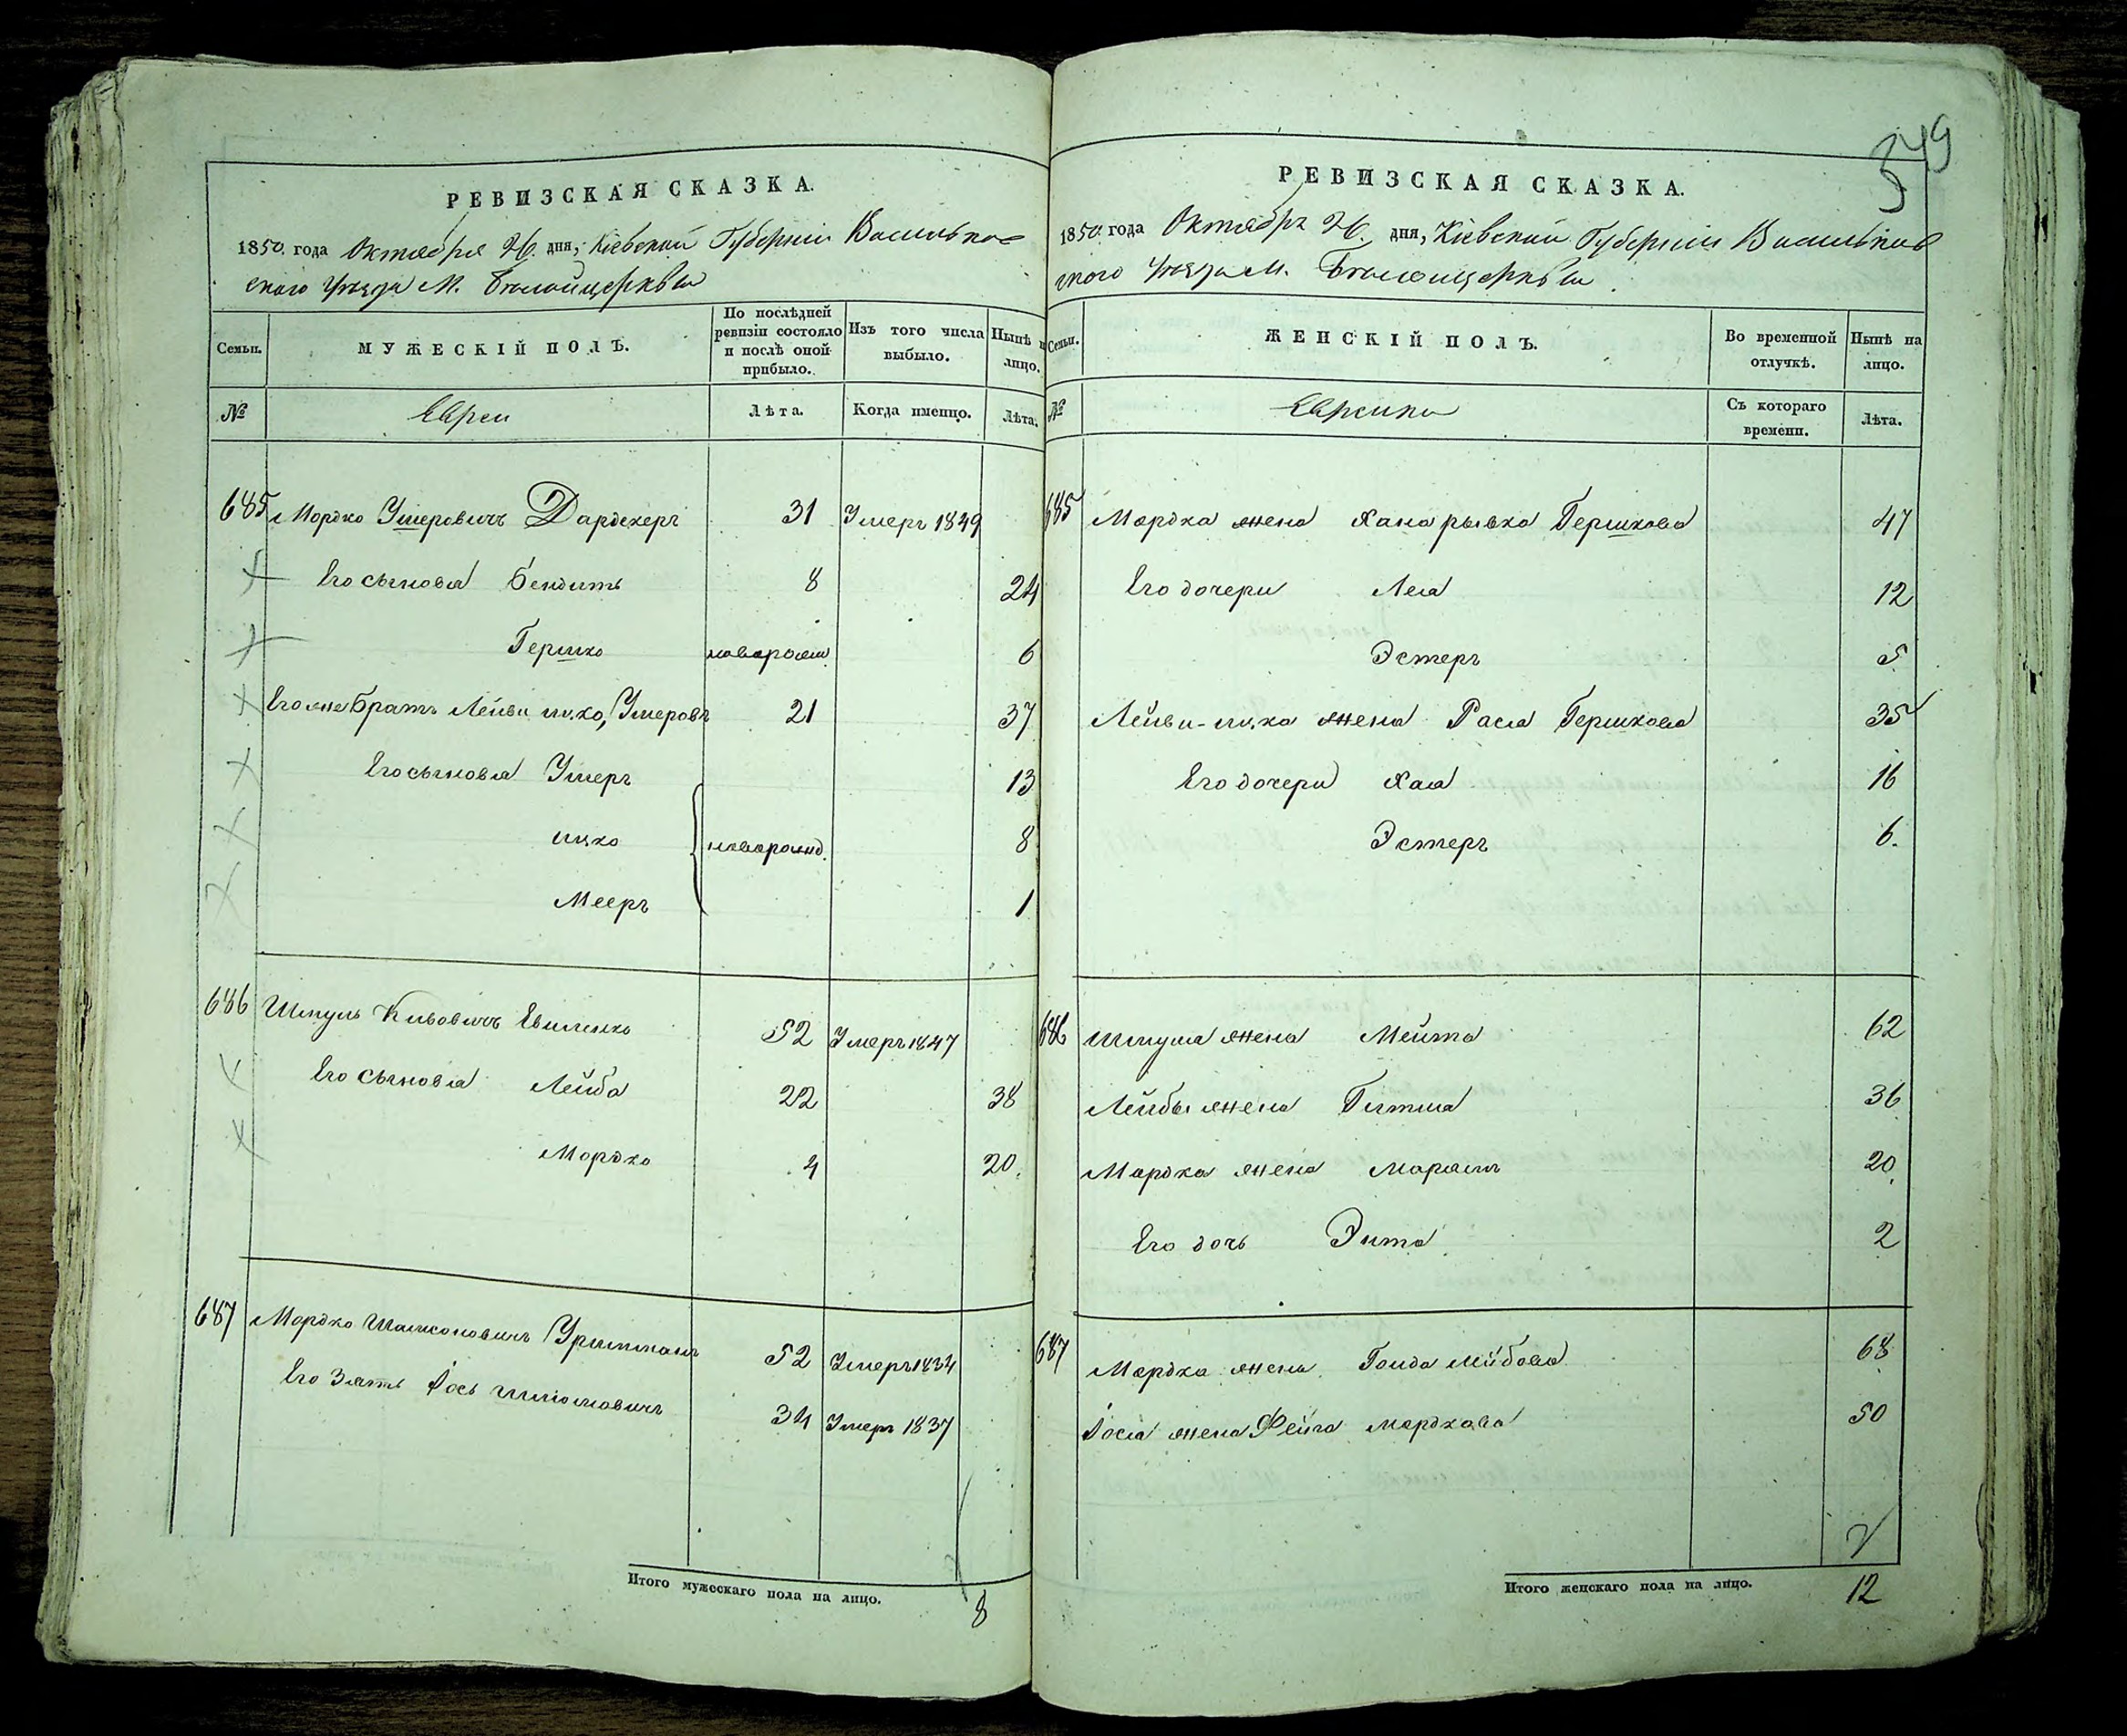 349
РЕВИЗСКАЯ СКАЗКА.
1850. года Октября 26. дня, Кіевской Губерніи Васильков-
скаго Уѣзда М. Бѣлойцеркви
Семьи. МУЖЕСКІЙ ПОЛЪ. По послѣдней ревизіи состояло и послѣ оной прибыло. Изъ того числа выбыло. Нынѣ на лицо.
№ Евреи Лѣта. Когда именно. Лѣта.
685 Мордко Умеровичъ Дардекеръ 31 Умеръ 1849
Его сыновья Бендитъ 8 24
Гершко новорожд. 6
Его же братъ Лейви ицко, Умеровъ 21 37
Его сыновья Умеръ 13
ицко новорожд. 8
Мееръ 1
686 Шмуль Кивовичъ 52 Умеръ 1847
Его сыновья Лейба 22 38
Мордко 4 20.
687 Мордко Шамсоновичъ 52 Умеръ 1834
Его Зять Іось Шліомовичъ 34 Умеръ 1837
Итого мужескаго пола на лицо. 8
РЕВИЗСКАЯ СКАЗКА.
1850. года Октября 26. дня, Кіевской Губерніи Васильков
скаго Уѣзда М. Бѣлойцеркви.
Семьи. ЖЕНСКІЙ ПОЛЪ. Во временной отлучкѣ. Нынѣ на лицо.
№ Еврейки Съ котораго времени. Лѣта.
685 Мордка жена Хана рывка Гершкова 47
Его дочери Лея 12
Эстеръ 5
Лейви-ицка жена Рася Гершкова 35
Его дочери Хая 16
Эстеръ 6.
686 Шмуля жена Мейта 62
Лейбы жена Гитля 36
Мордка жена Маріямъ 20.
Его дочь Эита 2
687 Мордка жена Голда Лейбова 68
Іося жена Фейга Мордкова 50
Итого женскаго пола на лицо. 12